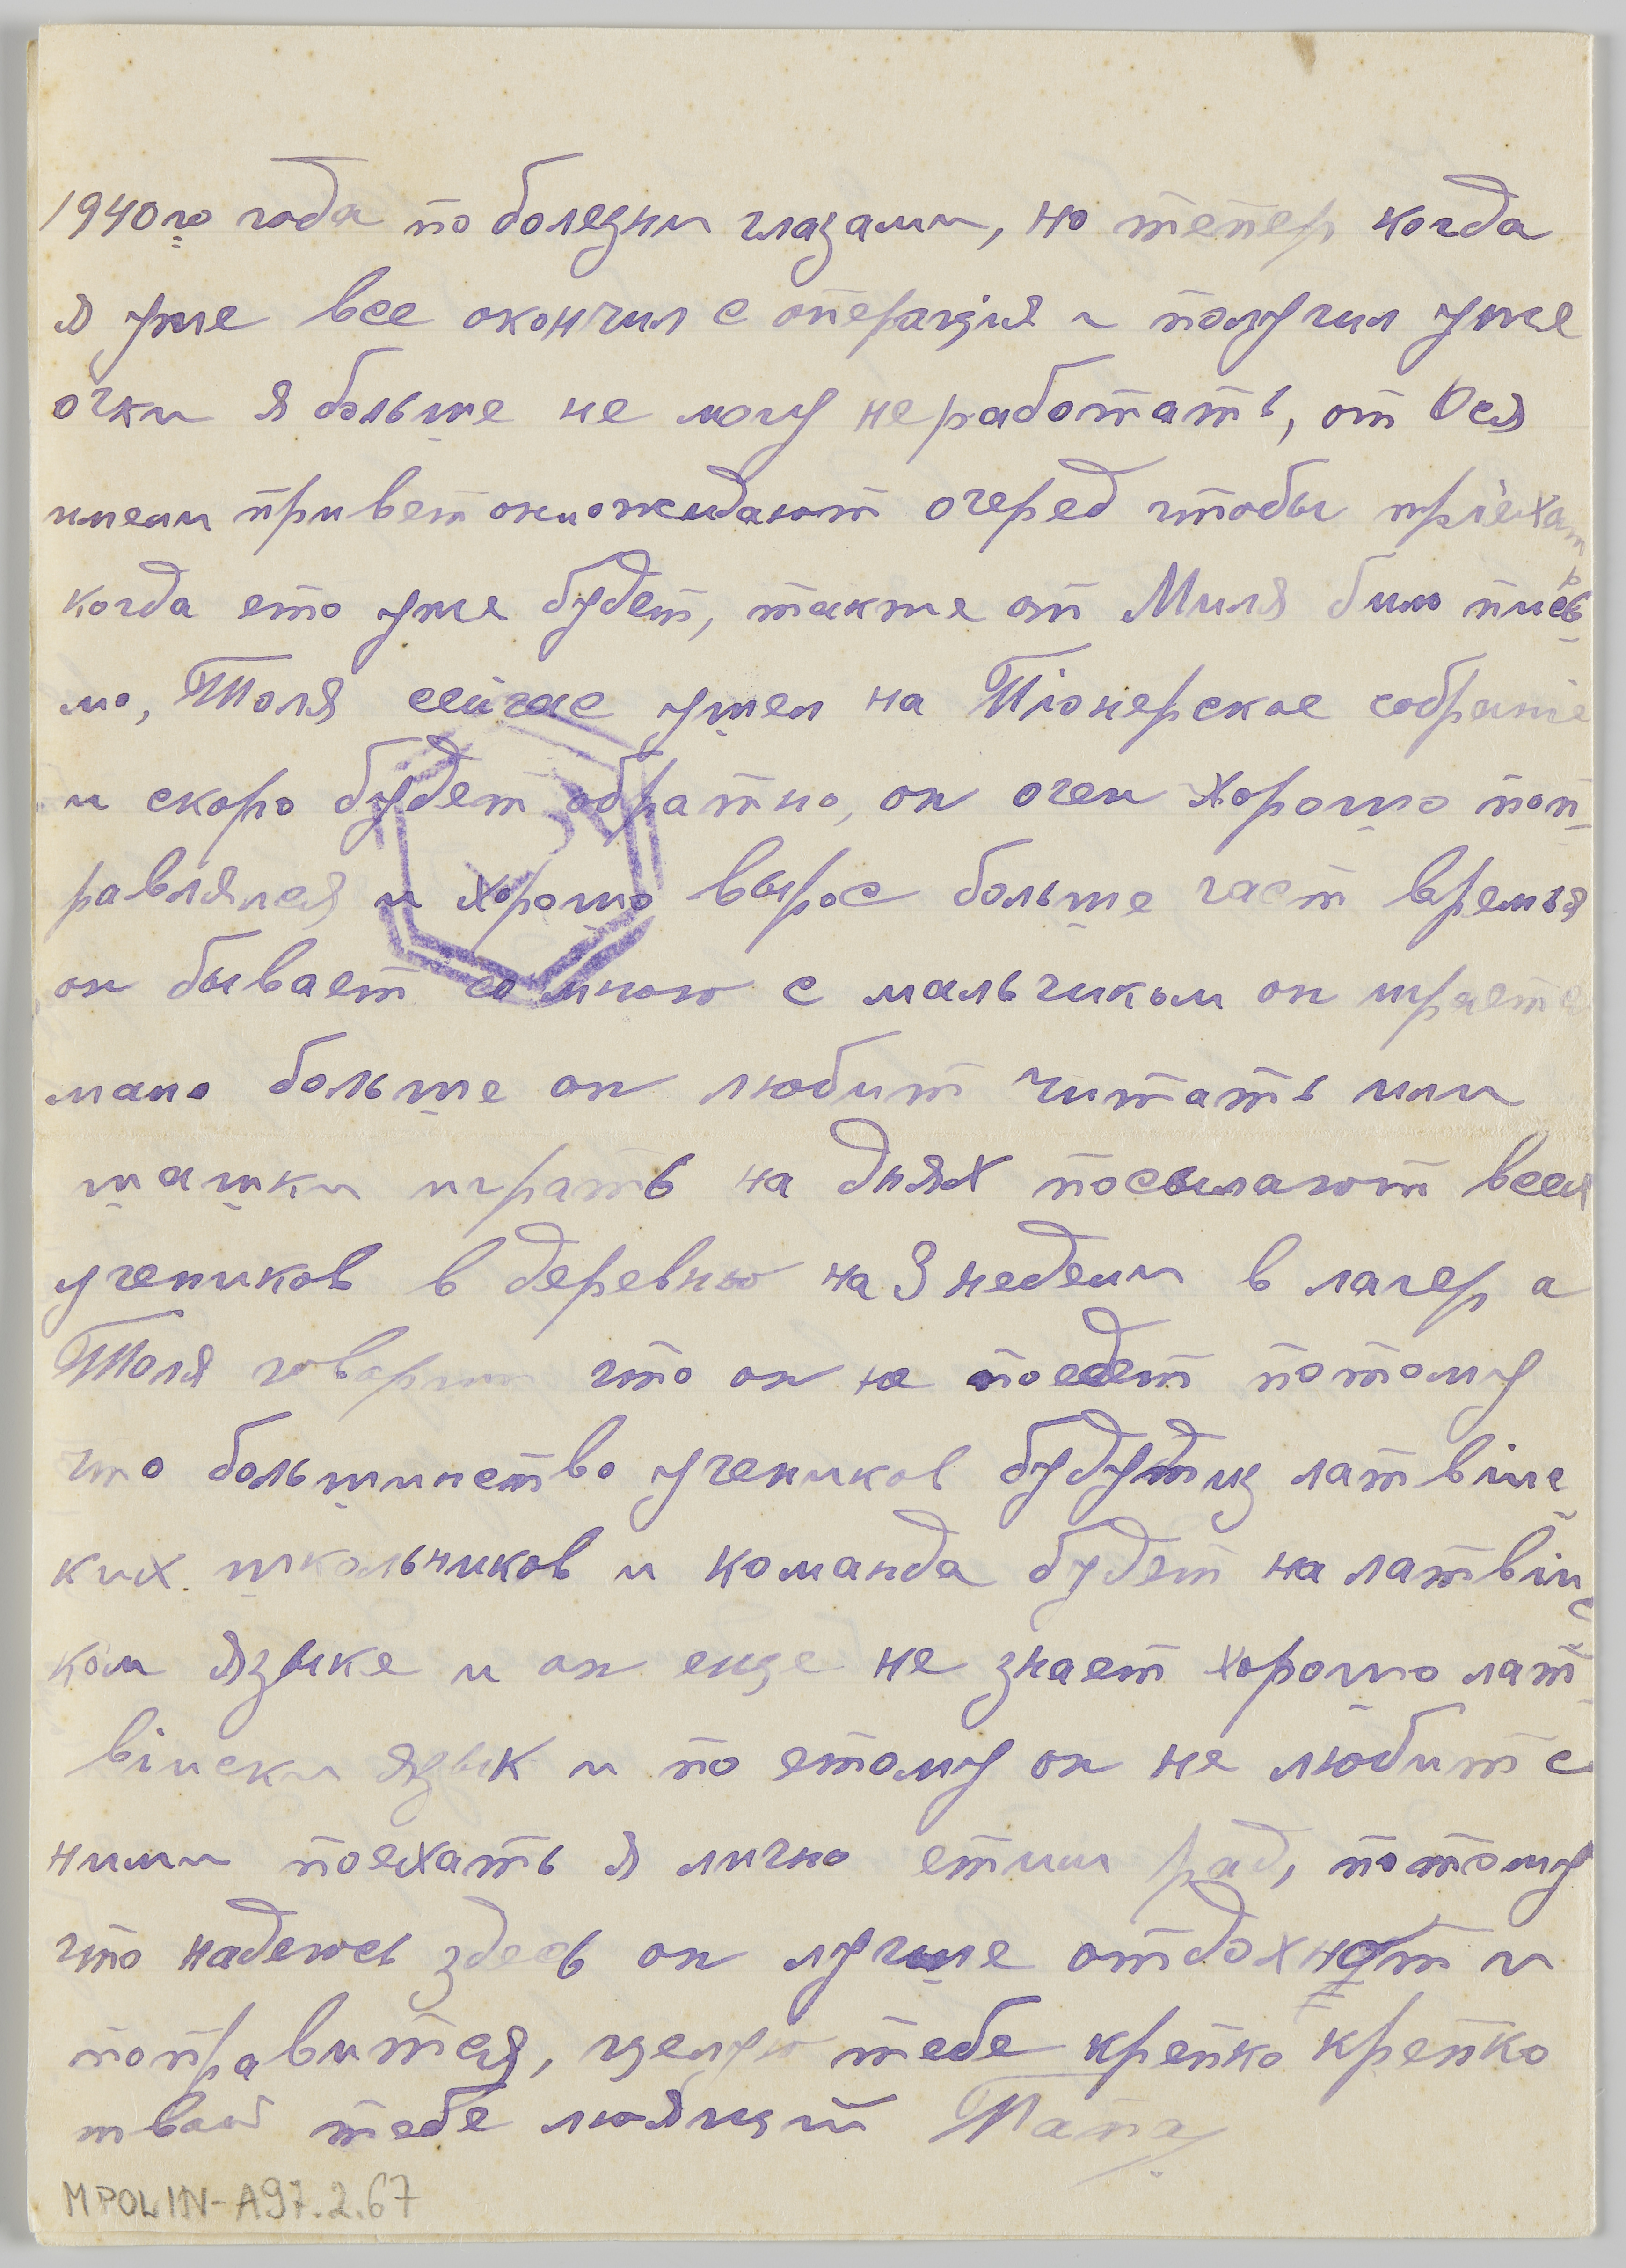 1940го года по болезни глазами, но тепер когда
я уже все окончил с операція и получил уже
очки я больше не могу не работать, от Ося
имели привет они ожидают очеред чтобы пріехать
когда ето уже будет, также от Миля било пись
мо, Толя сейчас ушел на Піонерское собраніе
и скоро будет обратно, он очен хорошо поп
равлялся и хорошо вырос больше част времья
он бывает со мною с мальчиком он играет
мало больше он любит читать или
шашки играть на днях посылают всех
учеников в деревнью на 3 недели в лагер а
Толя говорит что он не поедет потому
что большинство учеников будут из латвійс
ких школьников и команда будет на латвійс
ком языке и он еще не знает хорошо лат
війски язык и по етому он не любит с
ними поехать я лично етим рад, потому
что надеюсь здесь он лучше отдохнет и
поправится, целую тебе крепко крепко
твой тебе люящий Папа
MPOLIN-A97.2.67